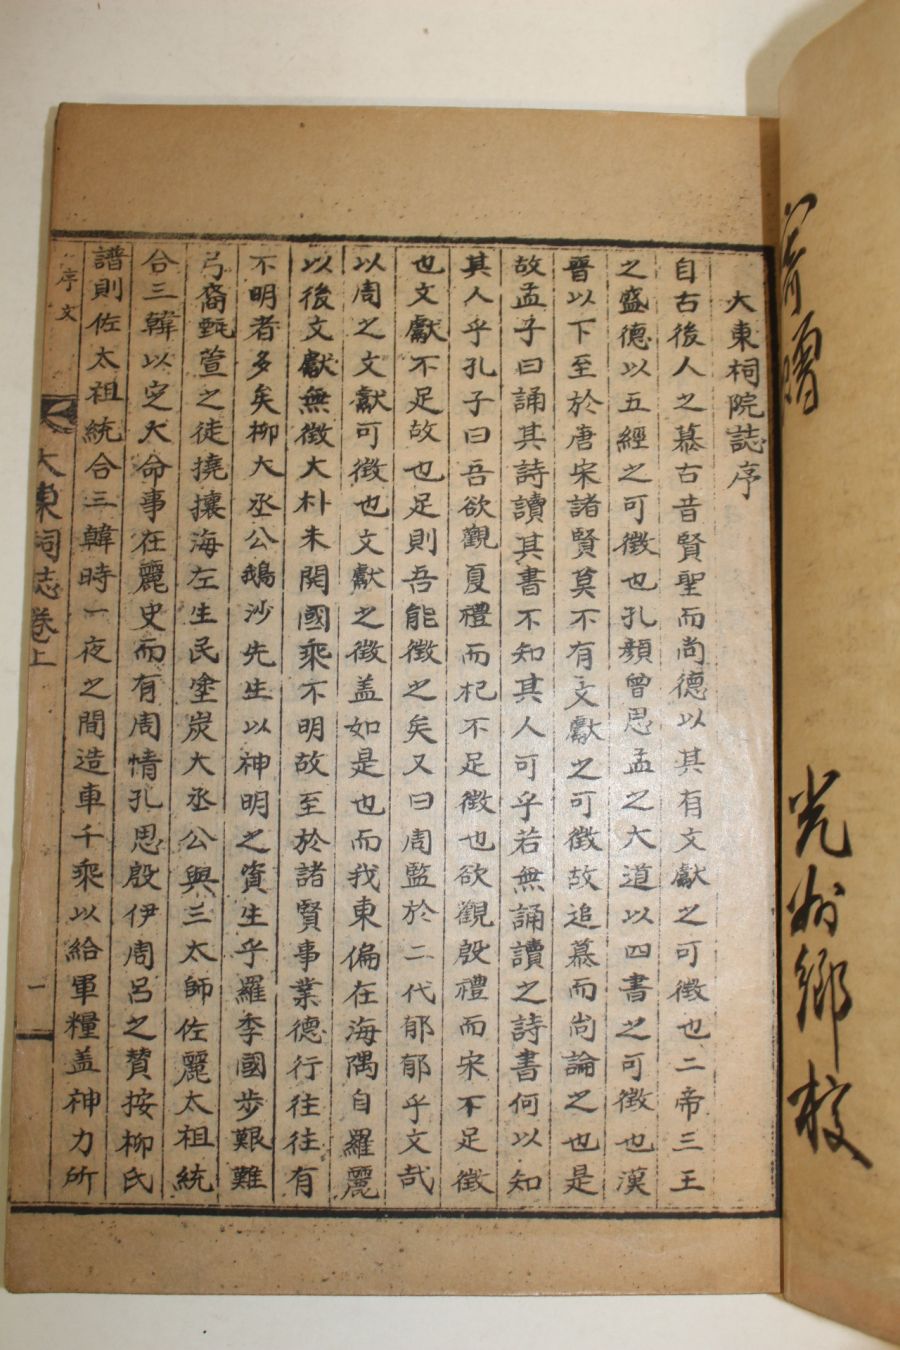 光州鄕校
大東祠院誌序
自古後人之慕古昔賢聖而尚德以其有文獻之可徵也二帝三王
之盛德以五經之可徵也孔顔曾思孟之大道以四書之可徵也漢
晉以下至於唐宋諸賢莫不有文獻之可徵故追慕而尚論之也是
故孟子曰誦其詩讀其書不知其人可乎若無誦讀之詩書何以知
其人乎孔子曰吾欲觀夏禮而杞不足徵也欲觀殷禮而宋不足徵
也文獻不足故也足則吾能徵之矣又曰周監於二代郁郁乎文哉
以周之文獻可徵也文獻之徵盖如是也而我東偏在海隅自羅麗
以後文獻無徵大朴未開國乘不明故至於諸賢事業德行往往有
不明者多矣柳大丞公鵝沙先生以神明之資生乎羅季國步艱難
弓裔甄萱之徒撓攘海左生民塗炭大丞公與三太師佐麗太祖統
合三韓以定大命事在麗史而有周情孔思殷伊周呂之贊按柳氏
譜則佐太祖統合三韓時一夜之間造車千乘以給軍糧盖神力所
序文
大東祠誌卷上
一